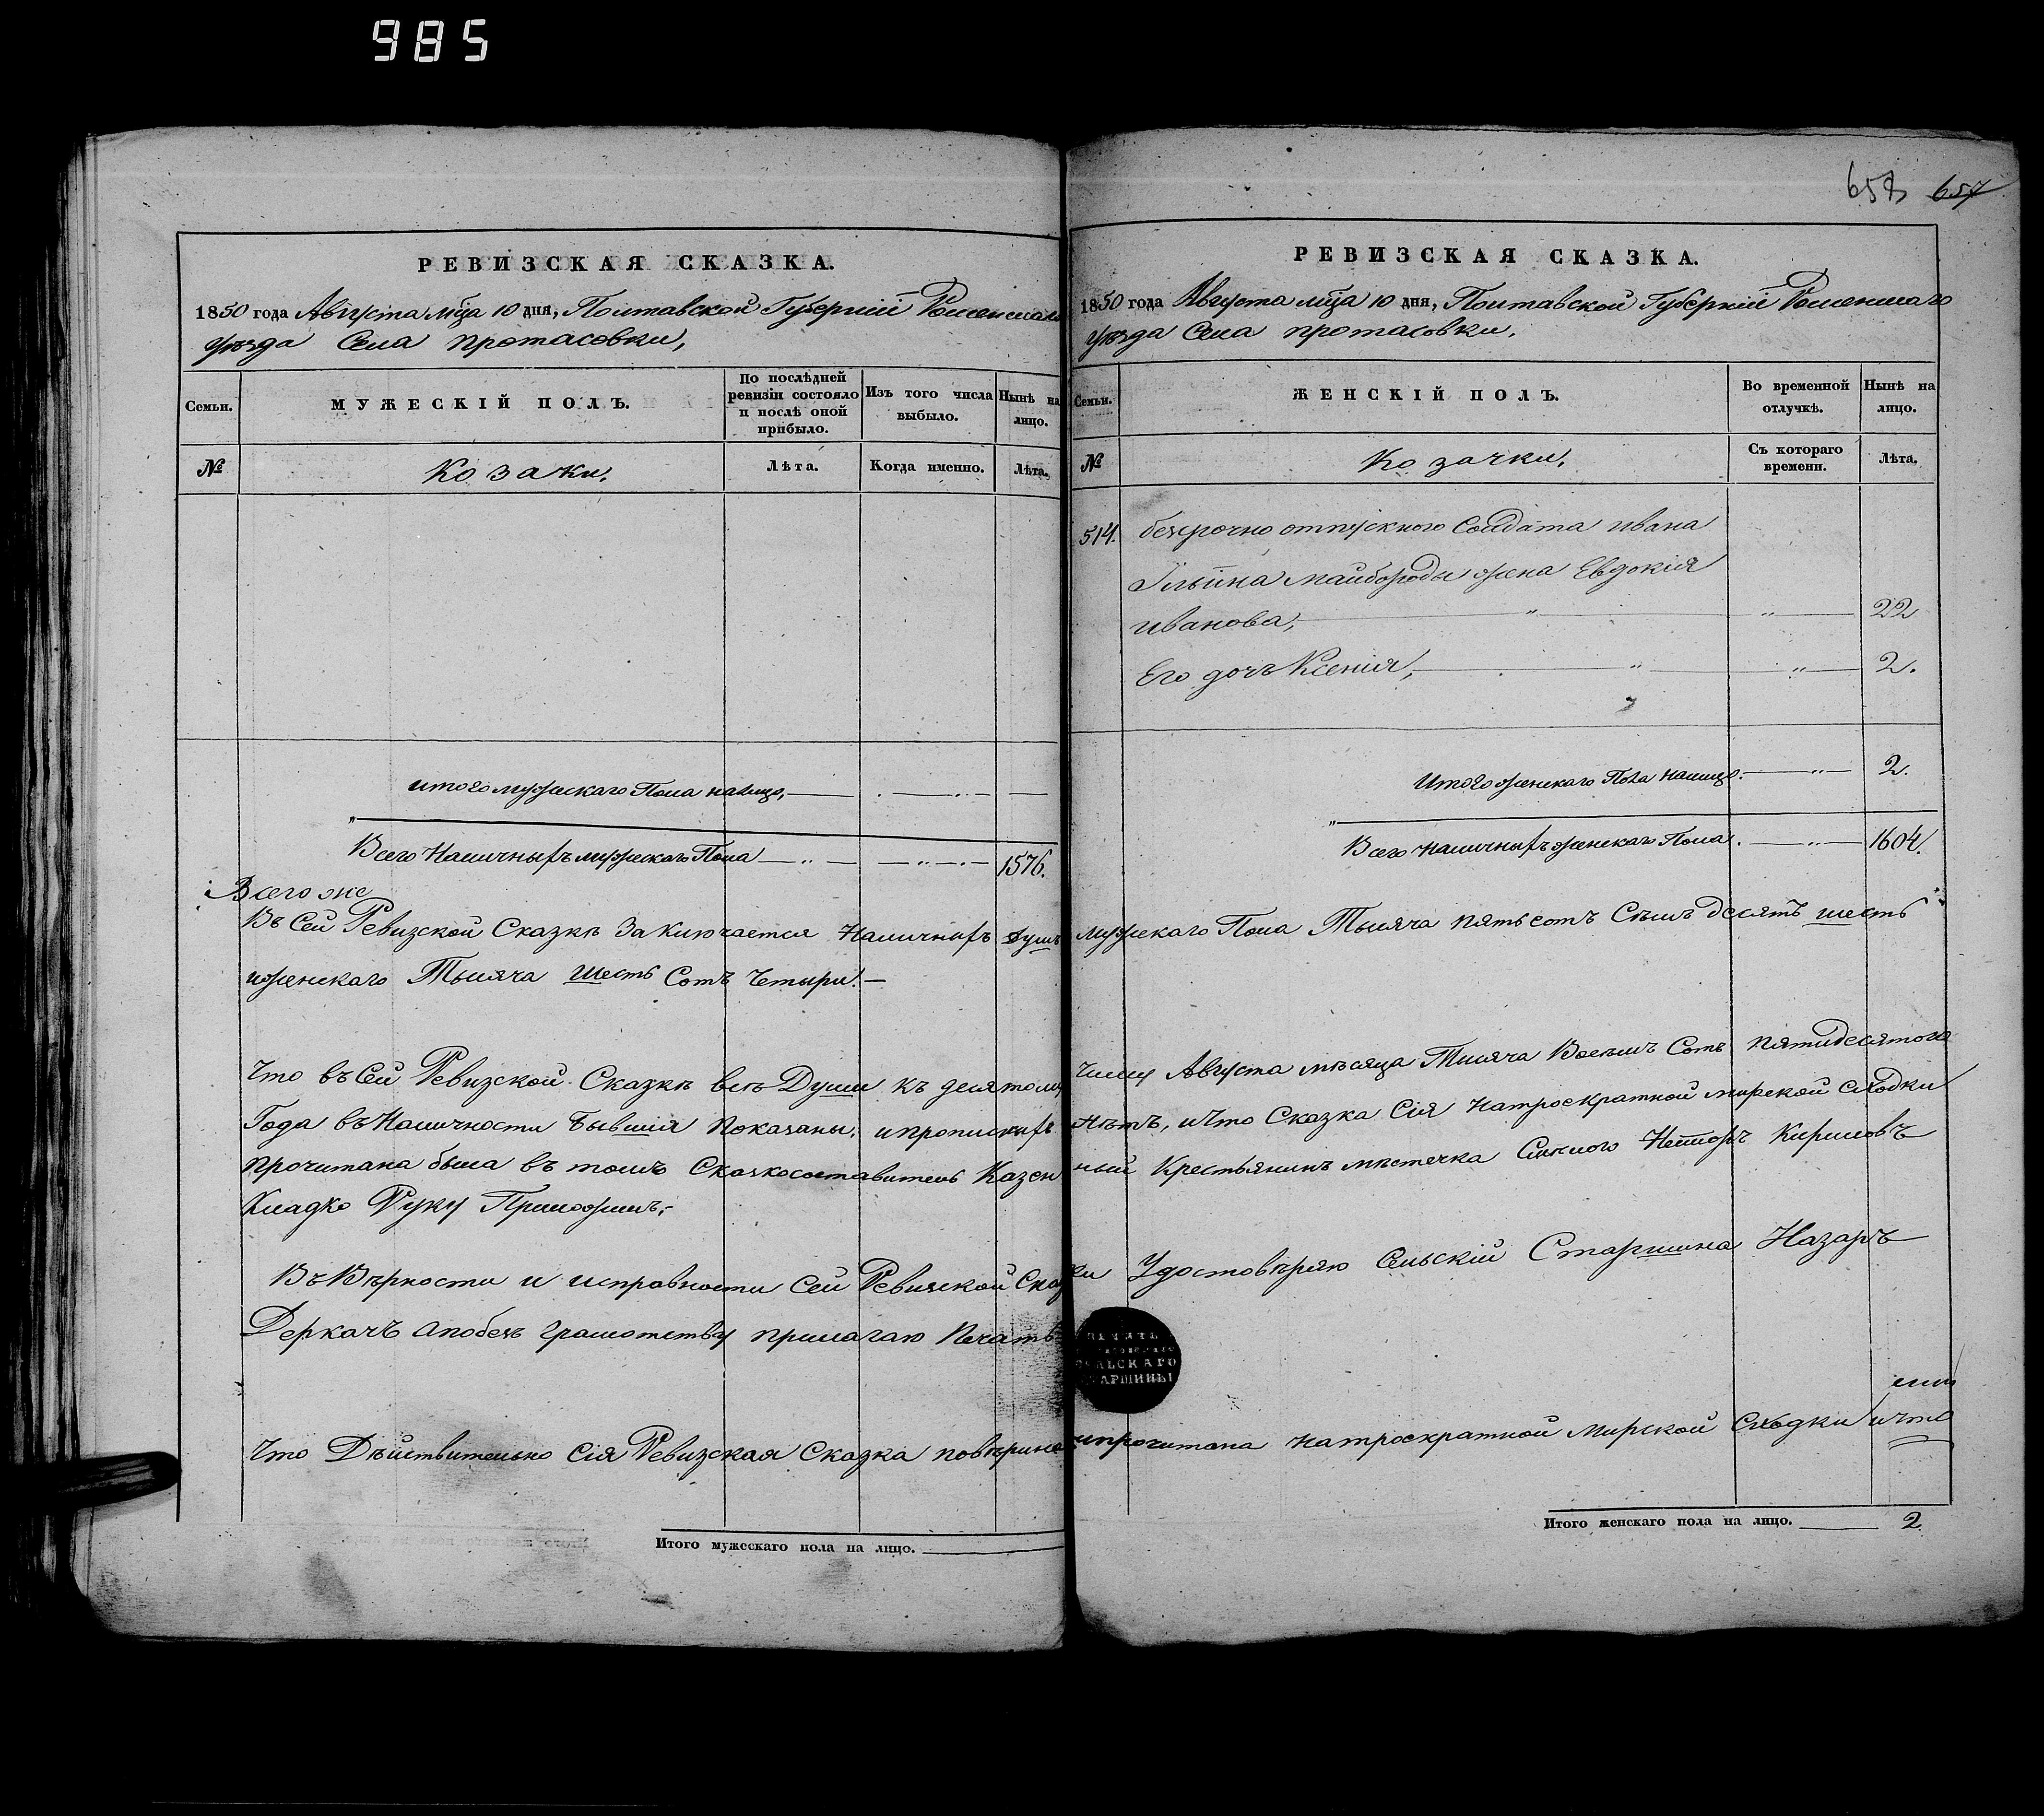 985
658 657
РЕВИЗСКАЯ СКАЗКА.
1850 года Августа мца 10 дня, Полтавской Губерніи Роменскаго
уѣзда Села Протасовки,
Семьи.
МУЖЕСКІЙ ПОЛЪ.
По послѣдней ревизіи состояло и послѣ оной прибыло.
Изъ того числа выбыло.
Нынѣ на лицо.
№
Козаки.
Лѣта.
Когда именно.
Лѣта.
итого мужескаго Пола налицо,
Всего Наличныхъ мужескаго Пола 1576.
РЕВИЗСКАЯ СКАЗКА.
1850 года Августа мца 10 дня, Полтавской Губерніи Роменскаго
уѣзда Села Протасовки.
Семьи.
ЖЕНСКІЙ ПОЛЪ.
Во временной отлучкѣ.
Нынѣ на лицо.
№
Козачки.
Съ котораго времени.
Лѣта.
514. безсрочно отпускного Солдата Ивана
Ильина Майбороды жена Евдокія
Иванова, " " 22
Его дочь Ксенія, " " 2.
Итого женскаго Пола налицо. " 2.
Всего наличныхъ женскаго Пола. " 1604.
Всего же
Въ Сей Ревизской Сказкѣ Заключается Наличныхъ Душъ мужескаго Пола Тысяча пятьсотъ Семъ десятъ шесть
иженскаго Тысяча шесть Сотъ Четыри.—
Что въ Сей Ревизской Сказкѣ всѣ Души къ десятому Числу Августа мѣсяца Тысяча Восемъ Сотъ пятидесятого
Года въ Наличности Бывшія Показаны, ипрописныхъ нѣтъ, ичто Сказка Сія натроекратной мирской Сходки
Прочитана была въ томъ Сказкосоставитель Казенный Крестьянинъ мѣстечка Смѣлого Несторъ Кириловъ
Кладко Руку Приложилъ,
Въ Вѣрности и исправности Сей Ревизской Сказки Удостовѣряю Сельскій Старшина Назаръ
Деркачъ Апобезъ Грамотству прилагаю Печать
ПЕЧАТЬ
СЕЛЬСКАГО
СТАРШИНЫ
Что Дѣйствительно Сія Ревизская Сказка повѣрина ипрочитана натроекратной Мирской Сходки ичто
Итого мужескаго пола на лицо.
Итого женскаго пола на лицо. 2